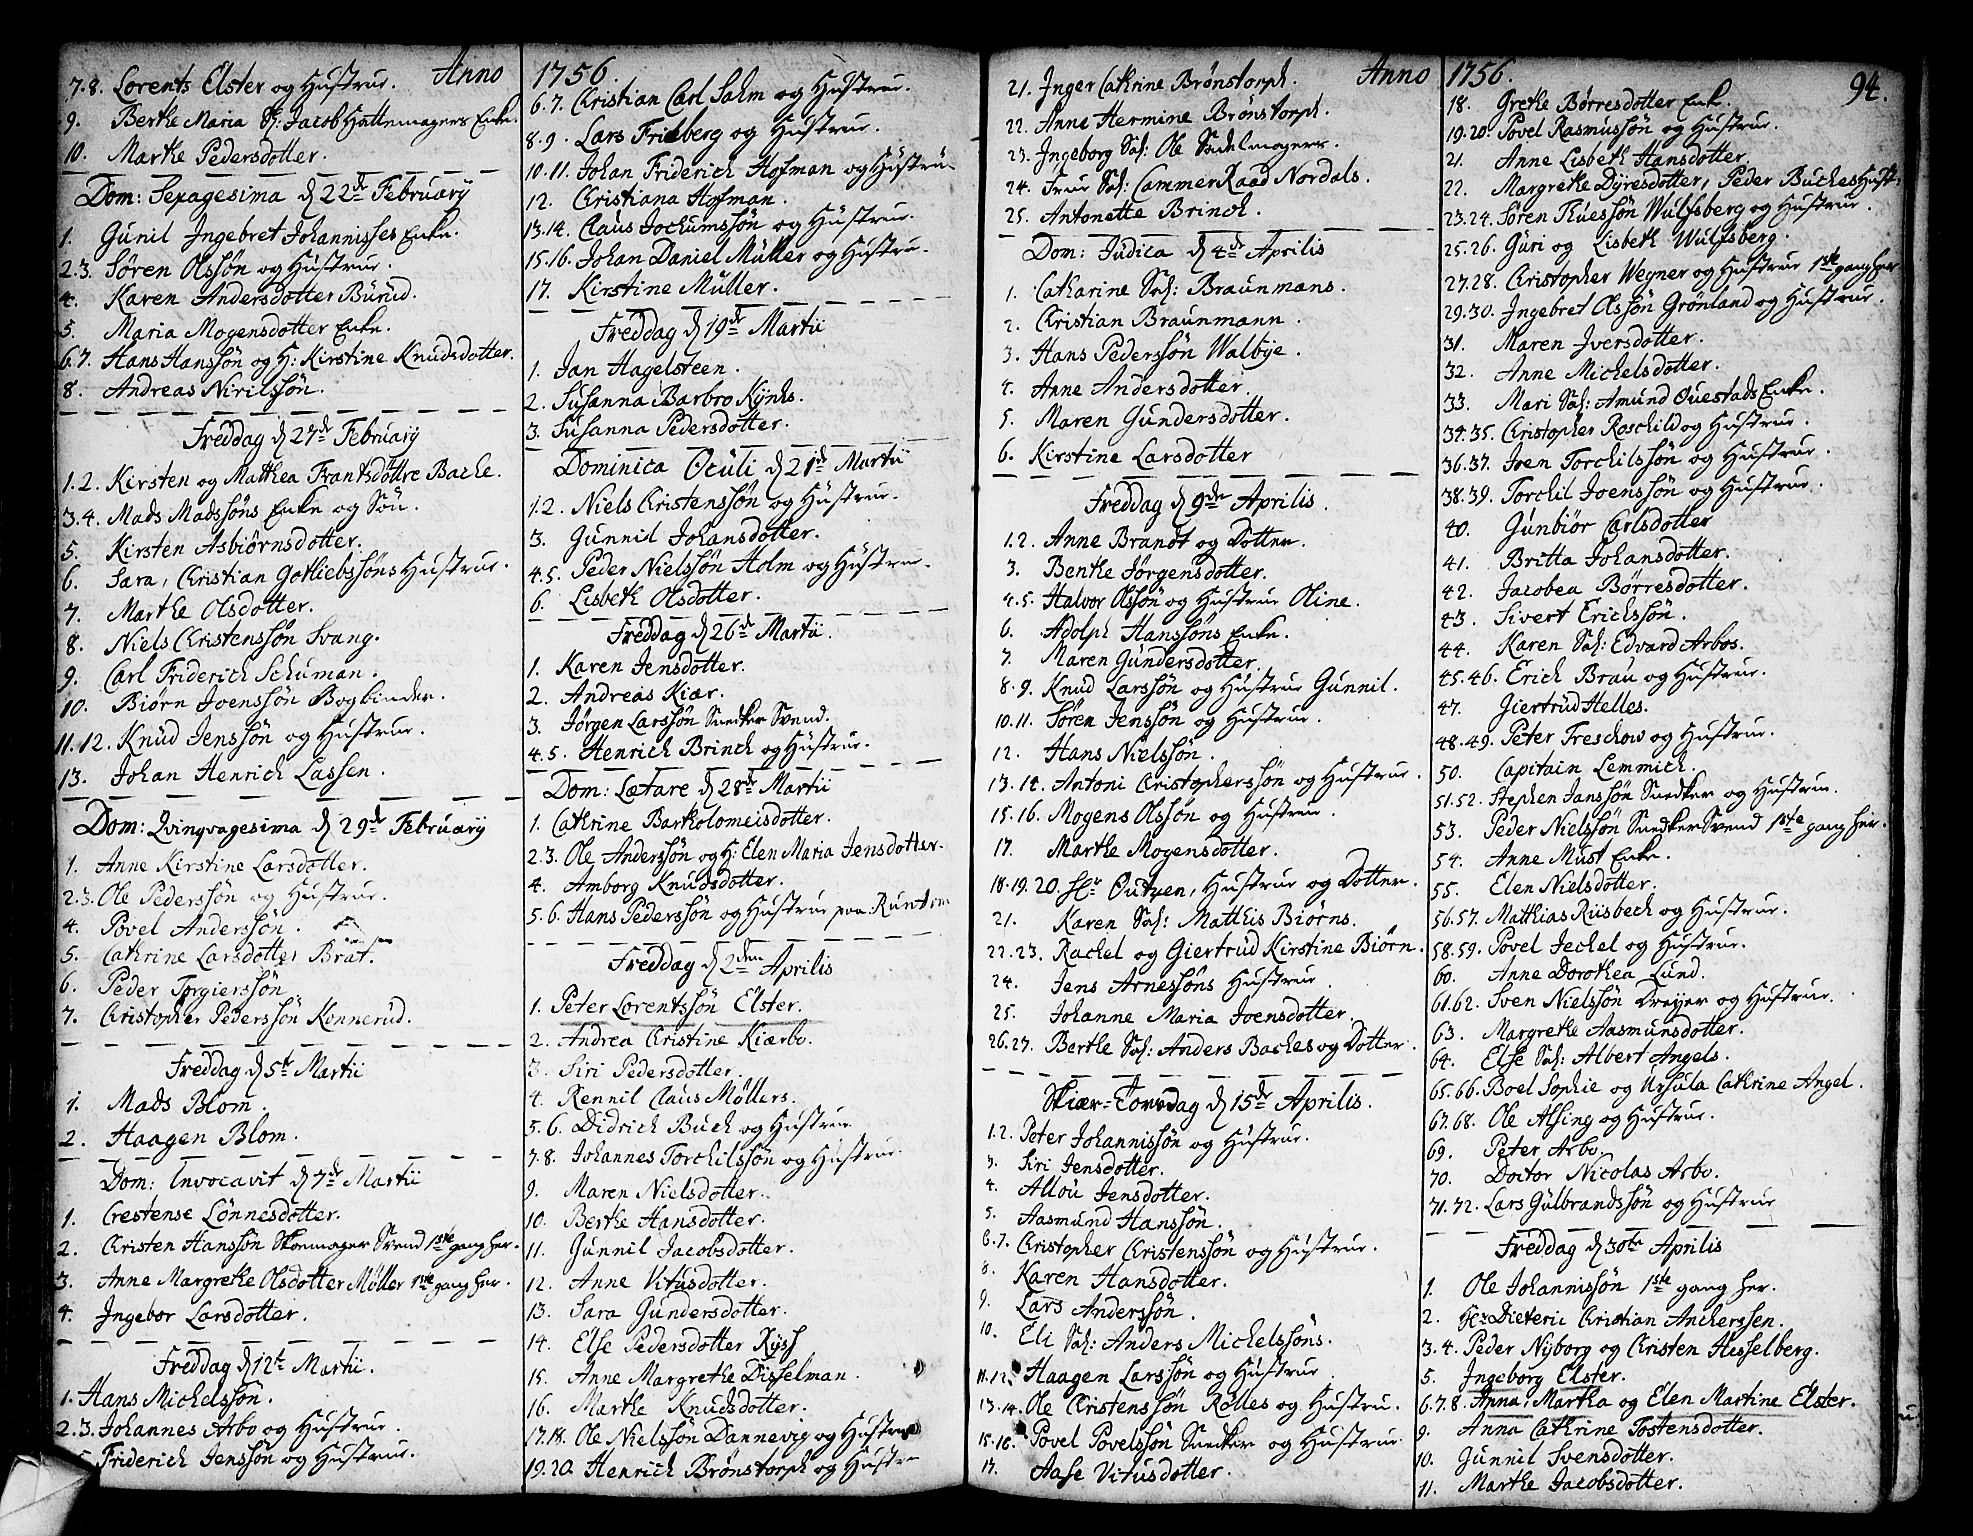 Anno 1756.
7.8. Lorents Elster og Hustrue.
9. Berthe Maria Sl: Jacob Hattemagers Enke.
10. Marthe Pedersdotter.
Dom: Sexagesima d 22de February
1. Gunil Ingebret Johannisses Enke.
2.3. Sören Olssön og Hustrue.
4. Karen Andersdotter Burud.
5. Maria Mogensdotter Enke.
6.7. Hans Hanssön og H: Kirstine Knudsdotter.
8. Andreas Nirilssön.
Freddag d 27de February
1.2. Kirsten og Matthea Frantsdöttre Bache.
3.4. Mads Madssöns Enke og Sön.
5. Kirsten Asbiörnsdotter.
6. Sara, Christian Gotliebssöns Hustrue.
7. Marthe Olsdotter.
8. Niels Christenssön Svang.
9. Carl Friderich Schuman.
10. Biörn Joenssön Bogbinder.
11.12. Knud Jenssön og Hustrue.
13. Johan Henrich Lassen.
Dom: Qvinqvagesima d 29de February
1. Anne Kirstine Larsdotter.
2.3. Ole Pederssön og Hustrue.
4. Povel Anderssön.
5. Cathrine Larsdotter Brat.
6. Peder Torgierssön
7. Christopher Pederssön Konnerud.
Freddag d 5te Martii
1. Mads Blom.
2. Haagen Blom.
Dom: Invocavit d 7de Martii
1. Crestense Lönnesdotter.
2. Christen Hanssön Skoemager Svend 1ste gang her.
3. Anne Margrethe Olsdotter Möller 1ste gang her.
4. Ingebor Larsdotter.
Freddag d 12te Martii.
1. Hans Michelssön.
2.3. Johannes Arbo og Hustrue.
5. Friderich Jenssön og Hustrue.
6.7. Christian Carl Salm og Hustrue.
8.9. Lars Frideberg og Hustrue.
10.11. Johan Friderich Hofman og Hustrue
12. Christiana Hofman.
13.14. Claus Jochumssön og Hustrue.
15.16. Johan Daniel Müller og Hustrue.
17. Kirstine Müller.
Freddag d 19de Martii
1. Jan Hagelsteen.
2. Susanna Barbro Kynks.
3. Susanna Pedersdotter.
Dominica Oculi d 21de Martii
1.2. Niels Christenssön og Hustrue.
3. Gunnil Johansdotter.
4.5. Peder Nielssön Holm og Hustrue.
6. Lisbeth Olsdotter.
Freddag d 26de Martii.
1. Karen Jensdotter.
2. Andreas Kiær.
3. Jörgen Larssön Snedker Svend.
4.5. Henrich Brinch og Hustrue.
Dom: Lætare d 28de Martii
1. Cathrine Bartholomeisdotter.
2.3. Ole Anderssön og H: Elen Maria Jensdotter.
4. Amborg Knudsdotter.
5.6. Hans Pederssön og Hustrue paa Runtom
Freddag d 2den Aprilis
1. Peter Lorentssön Elster.
2. Andrea Christine Kiærbo.
3. Siri Pedersdotter.
4. Rennil Claus Möllers.
5.6. Didrich Buch og Hustrue
7.8. Johannes Torchilssön og Hustrue.
9. Maren Nielsdotter.
10. Berthe Hansdotter.
11. Gunnil Jacobsdotter.
12. Anne Vitusdotter.
13. Sara Gundersdotter.
14. Else Pedersdotter Ryss
15. Anne Margrethe Disselman.
16. Marthe Knudsdotter.
17.18. Ole Nielssön Dannevig og Hustrue
19.20. Henrich Brönstorph og Hustrue
Anno 1756.
94.
21. Inger Cathrine Brönstorph.
22. Anne Hermine Brönstorph.
23. Ingeborg Sal: Ole Sadelmagers.
24. Frue Sal: CammerRaad Nordals.
25. Antonette Brinch.
Dom: Judica d 4de Aprilis
1. Catharine Sal: Braunmans.
2. Christian Braunmann.
3. Hans Pederssön Walbye.
4. Anne Andersdotter.
5. Maren Gundersdotter.
6. Kirstine Larsdotter
Freddag d 9de Aprilis.
1.2. Anne Brandt og Dotter.
3. Benthe Jörgensdotter.
4.5. Halvor Olssön og Hustrue Oline.
6. Adolph Hanssöns Enke.
7. Maren Gundersdotter.
8.9. Knud Larssön og Hustrue Gunnil.
10.11. Sören Jenssön og Hustrue.
12. Hans Nielssön.
13.14. Antoni Christopherssön og Hustrue.
15.16. Mogens Olssön og Hustrue.
17. Marthe Mogensdotter.
18.19.20. Hr Outzen, Hustrue og Dotter.
21. Karen Sal: Matthis Biörns.
22.23. Rachel og Giertrud Kirstine Biörn.
24. Jens Arnessöns Hustrue.
25. Johanne Maria Joensdotter.
26.27. Berthe Sal: Anders Baches og Dotter.
Skiær-Torsdag d 15de Aprilis.
1.2. Peter Johannissön og Hustrue.
3. Siri Jensdotter.
4. Allou Jensdotter.
5. Aasmund Hanssön.
6.7. Christopher Christenssön og Hustrue.
8. Karen Hansdotter.
9. Lars Anderssön.
10. Eli Sal: Anders Michelssöns.
11.12. Haagen Larssön og Hustrue
13.14. Ole Christenssön Rölles og Hustru.
15.16. Povel Povelssön Snedker og Hustrue
17. Aase Vitusdotter.
18. Grethe Börresdotter Enke.
19.20. Povel Rasmussön og Hustrue.
21. Anne Lisbeth Hansdotter
22. Margrethe Dyresdotter, Peder Buches Hust:
23.24. Sören Thuessön Wulfsberg og Hustrue.
25.26. Guri og Lisbeth Wulfsberg.
27.28. Christopher Wegner og Hustrue 1ste gang her
29.30. Ingebret Olssön Grönland og Hustrue.
31. Maren Iversdotter.
32. Anne Michelsdotter.
33. Mari Sal: Amund Ouestads Enke.
34.35. Christopher Roschild og Hustrue.
36.37. Joen Torchilssön og Hustrue.
38.39. Torchil Joenssön og Hustrue.
40. Gunbiör Carlsdotter
41. Britta Johansdotter.
42. Jacobea Börresdotter.
43. Sivert Erichssön.
44. Karen Sal: Edvard Arbos.
45.46. Erich Brau og Hustrue.
47. Giertrud Helles.
48.49. Peter Treschow og Hustrue.
50. Capitain Lemmich.
51.52. Stephen Janssön Snedker og Hustrue.
53. Peder Nielssön Snedker Svend 1ste gang her.
54. Anne Must Enke.
55. Elen Nielsdotter.
56.57. Matthias Riisbech og Hustrue.
58.59. Povel Jechel og Hustrue.
60. Anne Dorothea Lund.
61.62. Sven Nielssön Dreyer og Hustrue.
63. Margrethe Aasmunsdotter.
64. Else Sal: Albert Angels.
65.66. Boel Sophie og Ursula Cathrine Angel.
67.68. Ole Alsing og Hustrue.
69. Peter Arbo.
70. Doctor Nicolas Arbo.
71.72. Lars Gulbrandssön og Hustrue
Freddag d 30te Aprilis
1. Ole Johannissön 1ste gang her.
2. Hr Dieteric Christian Ancherssen.
3.4. Peder Nyborg og Christen Hesselberg.
5. Ingeborg Elster.
6.7.8. Anna, Martha og Elen Martine Elster.
9. Anna Cathrine Tostensdotter.
10. Gunnil Svensdotter.
11. Marthe Jacobsdotter.